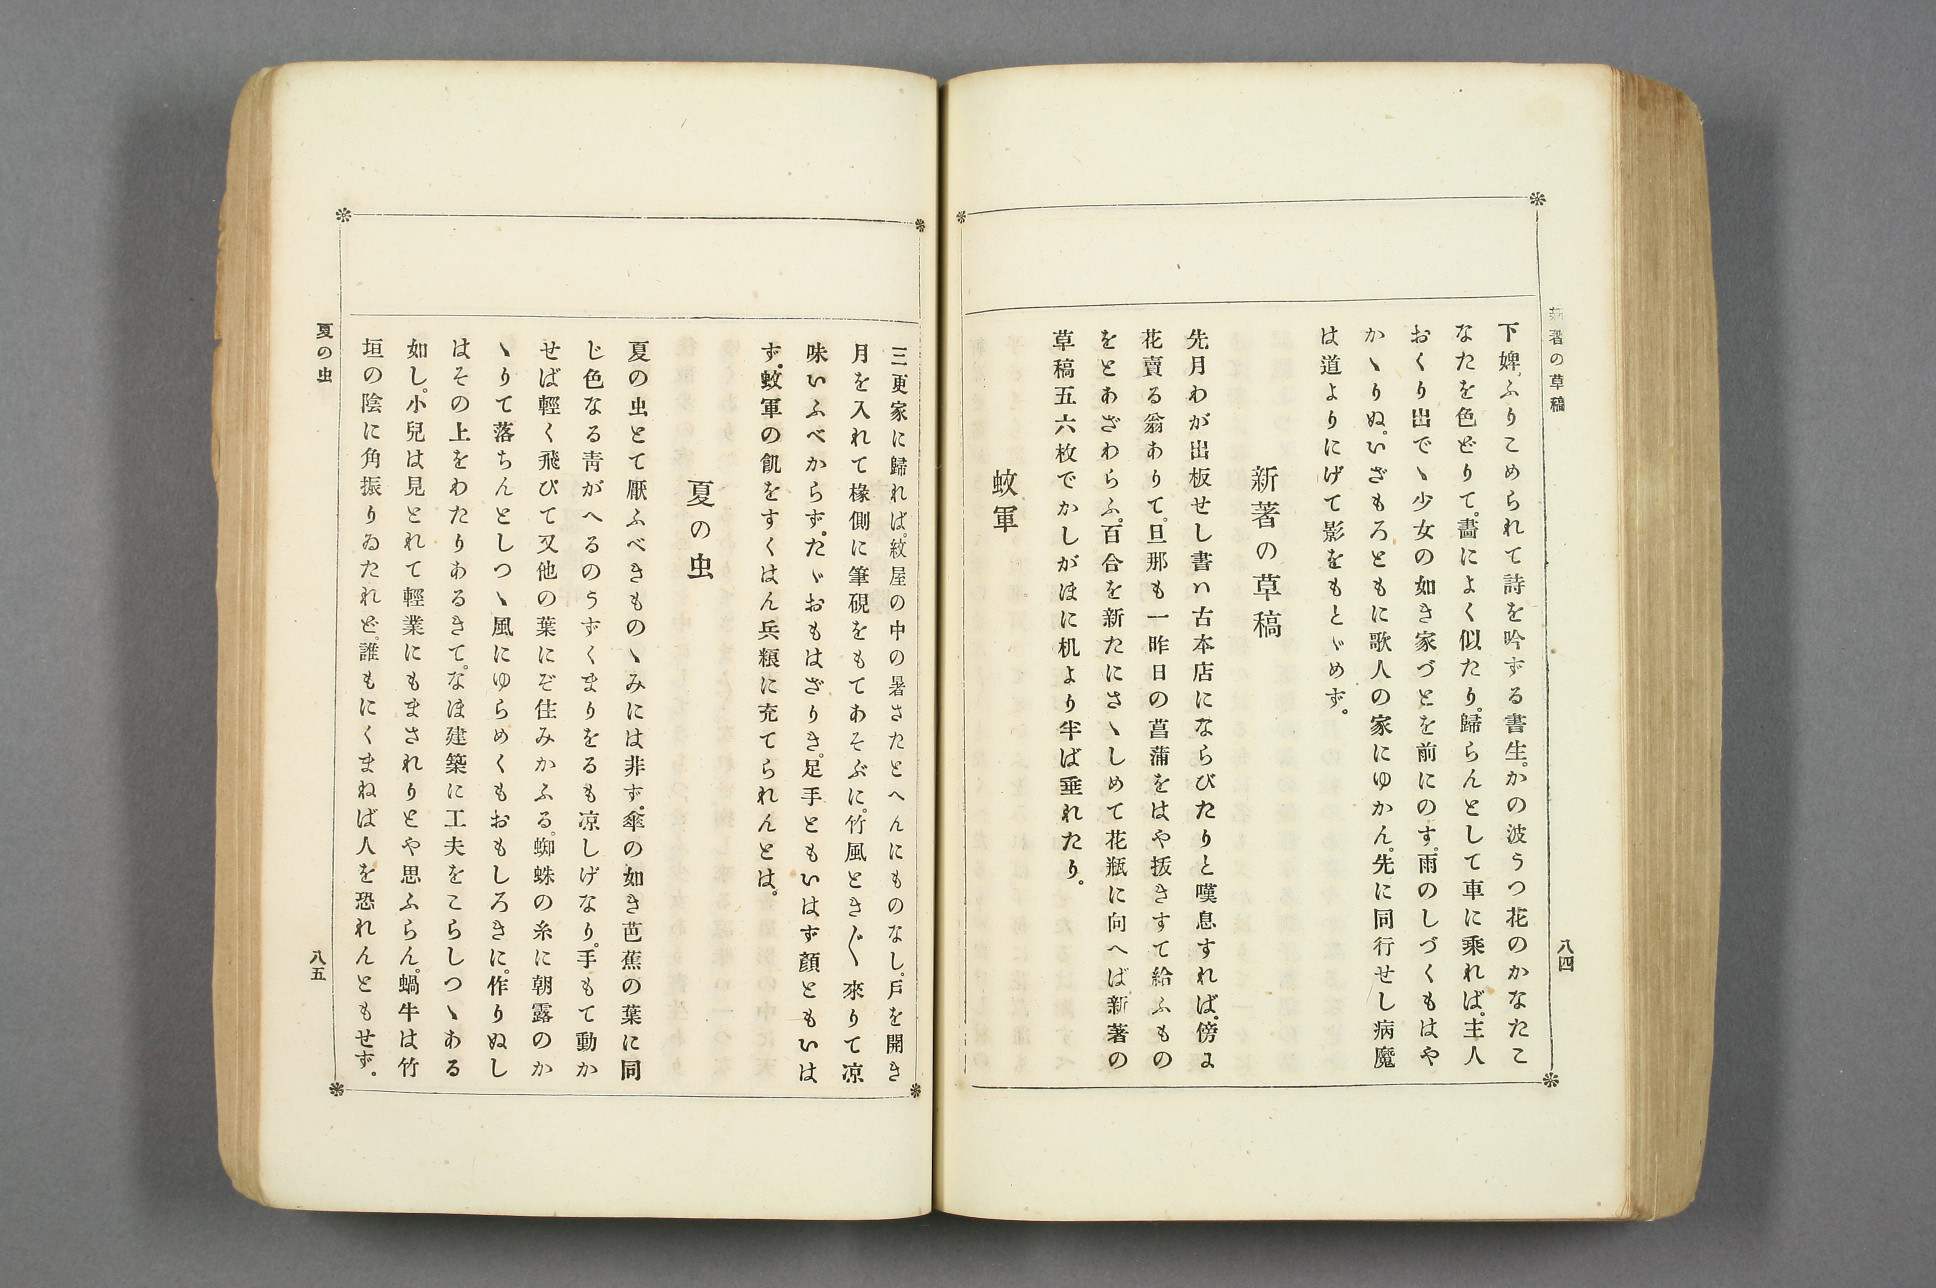 新著の草稿
下婢、ふりこめられて詩を吟ずる書生。かの波うつ花のかなたこ
なたを色どりて。畵によく似たり。歸らんとして車に乘れば。主人
おくり出でゝ少女の如き家づとを前にのす。雨のしづくもはや
かゝりぬ。いざもろともに歌人の家にゆかん。先に同行せし病魔
は道よりにげて影をもとゞめず。
新著の草稿
先月わが出板せし書ハ古本店にならびたりと嘆息すれば。傍よ
花賣る翁ありて。旦那も一昨日の菖蒲をはや拔きすて給ふもの
をとあざわらふ。百合を新たにさゝしめて花瓶に向へば新著の
草稿五六枚でかしがほに机より半ば垂れたり。
蚊軍
八四
三更家に歸れば。紋屋の中の暑さたとへんにものなし。戸を開き
月を入れて椽側に筆硯をもてあそぶに。竹風ときぐ〵來りて凉
味いふべからず。たゞおもはざりき。足手ともいはず顏ともいは
ず。蚊軍の飢をすくはん兵粮に充てられんとは。
夏の虫
夏の虫とて厭ふべきものゝみには非ず。傘の如き芭蕉の葉に同
じ色なる靑がへるのうずくまりをるも凉しげなり。手もて動か
せば輕く飛びて又他の葉にぞ住みかふる。蜘蛛の糸に朝露のか
ゝりて落ちんとしつゝ風にゆらめくもおもしろきに。作りぬし
はその上をわたりあるきて。なほ建築に工夫をこらしつゝある
如し。小兒は見とれて輕業にもまされりとや思ふらん。蝸牛は竹
垣の陰に角振りゐたれど。誰もにくまねば人を恐れんともせず。
夏の虫
八五